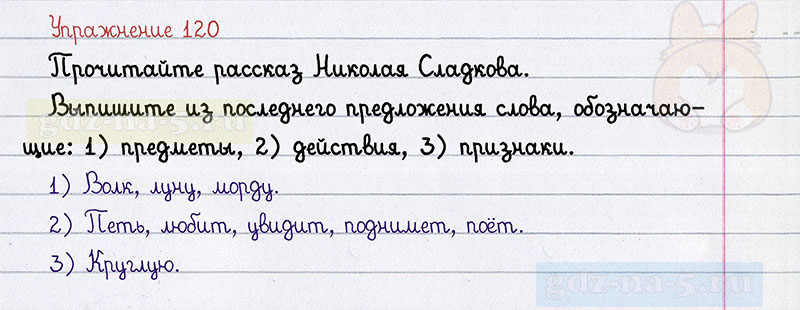 Упражнение 120
Прочитайте рассказ Николая Сладкова.
Выпишите из последнего предложения слова, обозначаю-
щие: 1) предметы, 2) действия, 3) признаки.
1) Волк, луну, морду.
2) Петь, любит, увидит, поднимет, поёт.
3) Круглую.
gdz-na-5.ru
gdz-na-5.ru